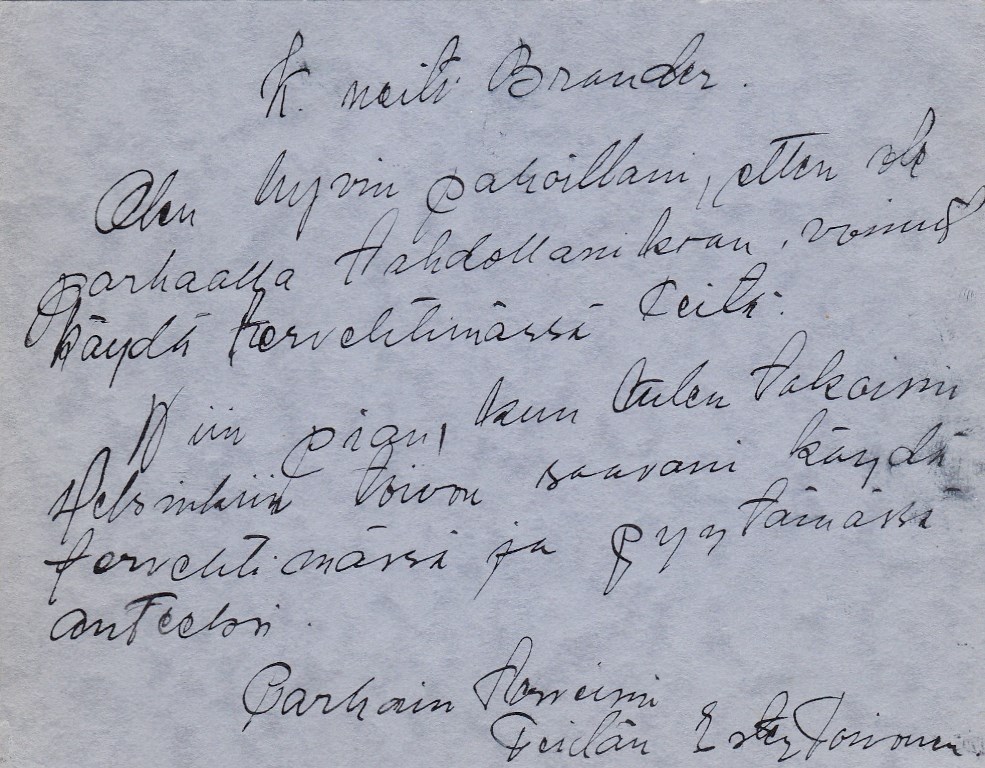 K. neiti Brander.
Olen hyvin pahoillani, etten ole
parhaalla tahdollanikaan, voinut
käydä tervehtimässä Teitä.
Niin pian, kun tulen takaisin
Helsinkiin toivon saavani käydä
tervehtimässä ja pyytämässä
anteeksi.
Parhain terveisin
Teidän Ester Toivonen.